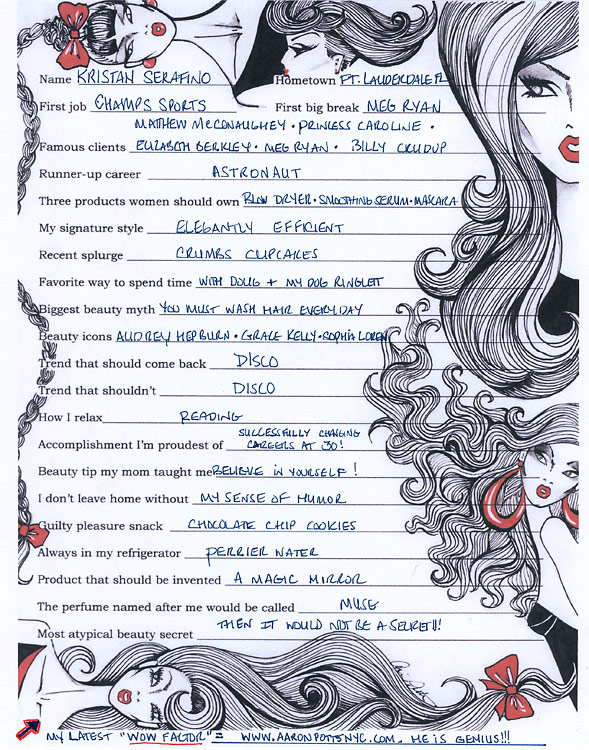 Name KRISTAN SERAFINO Hometown FT. LAUDERDALE FL
First job CHAMPS SPORTS First big break MEG RYAN
MATTHEW McCONAUGHEY • PRINCESS CAROLINE •
Famous clients ELIZABETH BERKLEY • MEG RYAN • BILLY CRUDUP
Runner-up career ASTRONAUT
Three products women should own BLOW DRYER • SMOOTHING SERUM • MASCARA
My signature style ELEGANTLY EFFICIENT
Recent splurge CRUMBS CUPCAKES
Favorite way to spend time WITH DOUG + MY DOG RINGLETT
Biggest beauty myth YOU MUST WASH HAIR EVERYDAY
Beauty icons AUDREY HEPBURN • GRACE KELLY • SOPHIA LOREN
Trend that should come back DISCO
Trend that shouldn't DISCO
How I relax READING
SUCCESSFULLY CHANGING
Accomplishment I'm proudest of CAREERS AT 30!
Beauty tip my mom taught me BELIEVE IN YOURSELF!
I don't leave home without MY SENSE OF HUMOR
Guilty pleasure snack CHOCOLATE CHIP COOKIES
Always in my refrigerator PERRIER WATER
Product that should be invented A MAGIC MIRROR
The perfume named after me would be called MUSE
THEN IT WOULD NOT BE A SECRET!!!
Most atypical beauty secret
MY LATEST "WOW FACTOR" = WWW.AARONPOTTSNYC.COM. HE IS GENIUS!!!